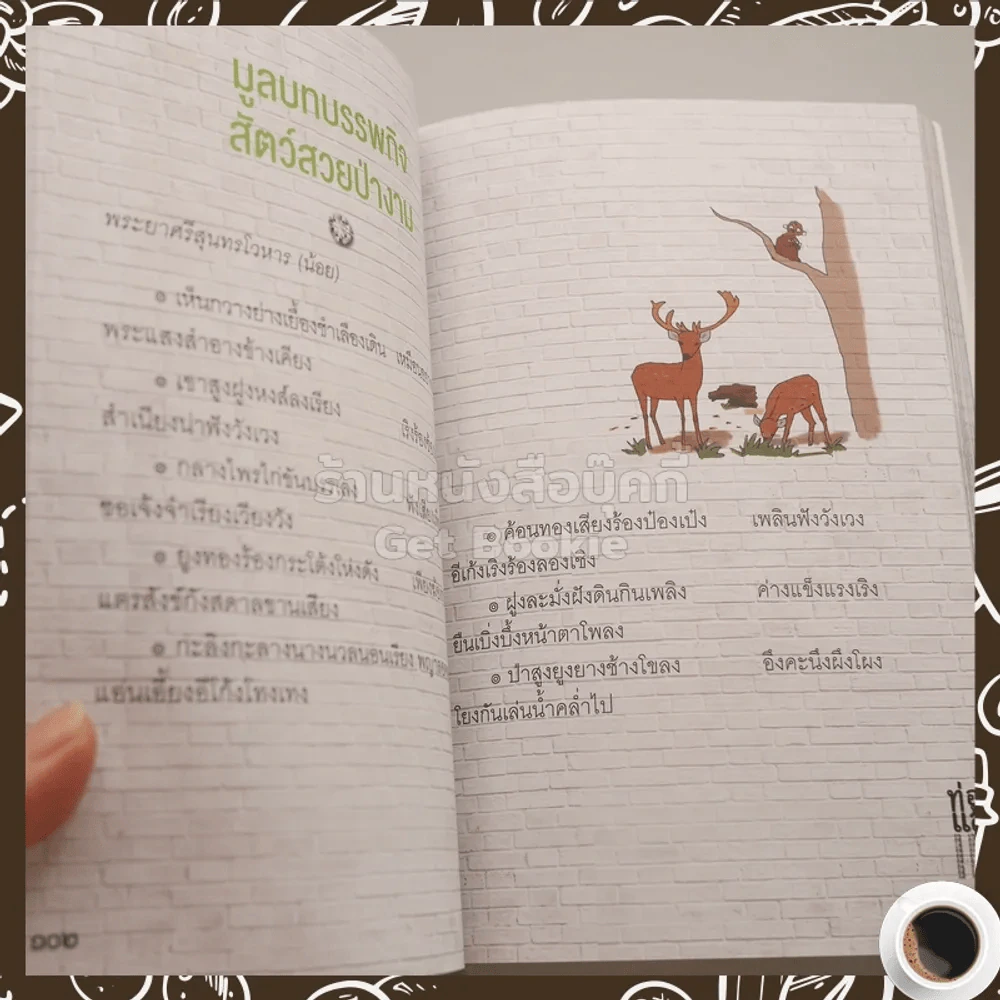 มูลบทบรรพกิจ
สัตว์สวยป่างาม
พระยาศรีสุนทรโวหาร (น้อย)
๏ เห็นกวางย่างเยื้องชำเลืองเดิน
พระแสงสำอางข้างเคียง
๏ เขาสูงฝูงหงส์ลงเรียง เริงร้อง
สำเนียงน่าฟังวังเวง
๏ กลางไพรไก่ขันบรรเลง
ซอเจ้งจำเรียงเวียงวัง
๏ ยูงทองร้องกระโต้งโห่งดัง
แตรสังข์กังสดาลขานเสียง
๏ กะลิงกะลางนางนวลนอนเรียง
แอ่นเอี้ยงอีโก้งโทงเทง
๑๐๒
๏ ค้อนทองเสียงร้องป๋องเป๋ง เพลินฟังวังเวง
อีเก้งเริงร้องลองเชิง
๏ ฝูงละมั่งฝังดินกินเพลิง ค่างแข็งแรงเริง
ยืนเบิ่งบึ้งหน้าตาโพลง
๏ ป่าสูงยูงยางช้างโขลง อึงคะนึงผึงโผง
โยงกันเล่นน้ำคล่ำไป
ร้านหนังสือบุ๊คกี้
Get Bookie